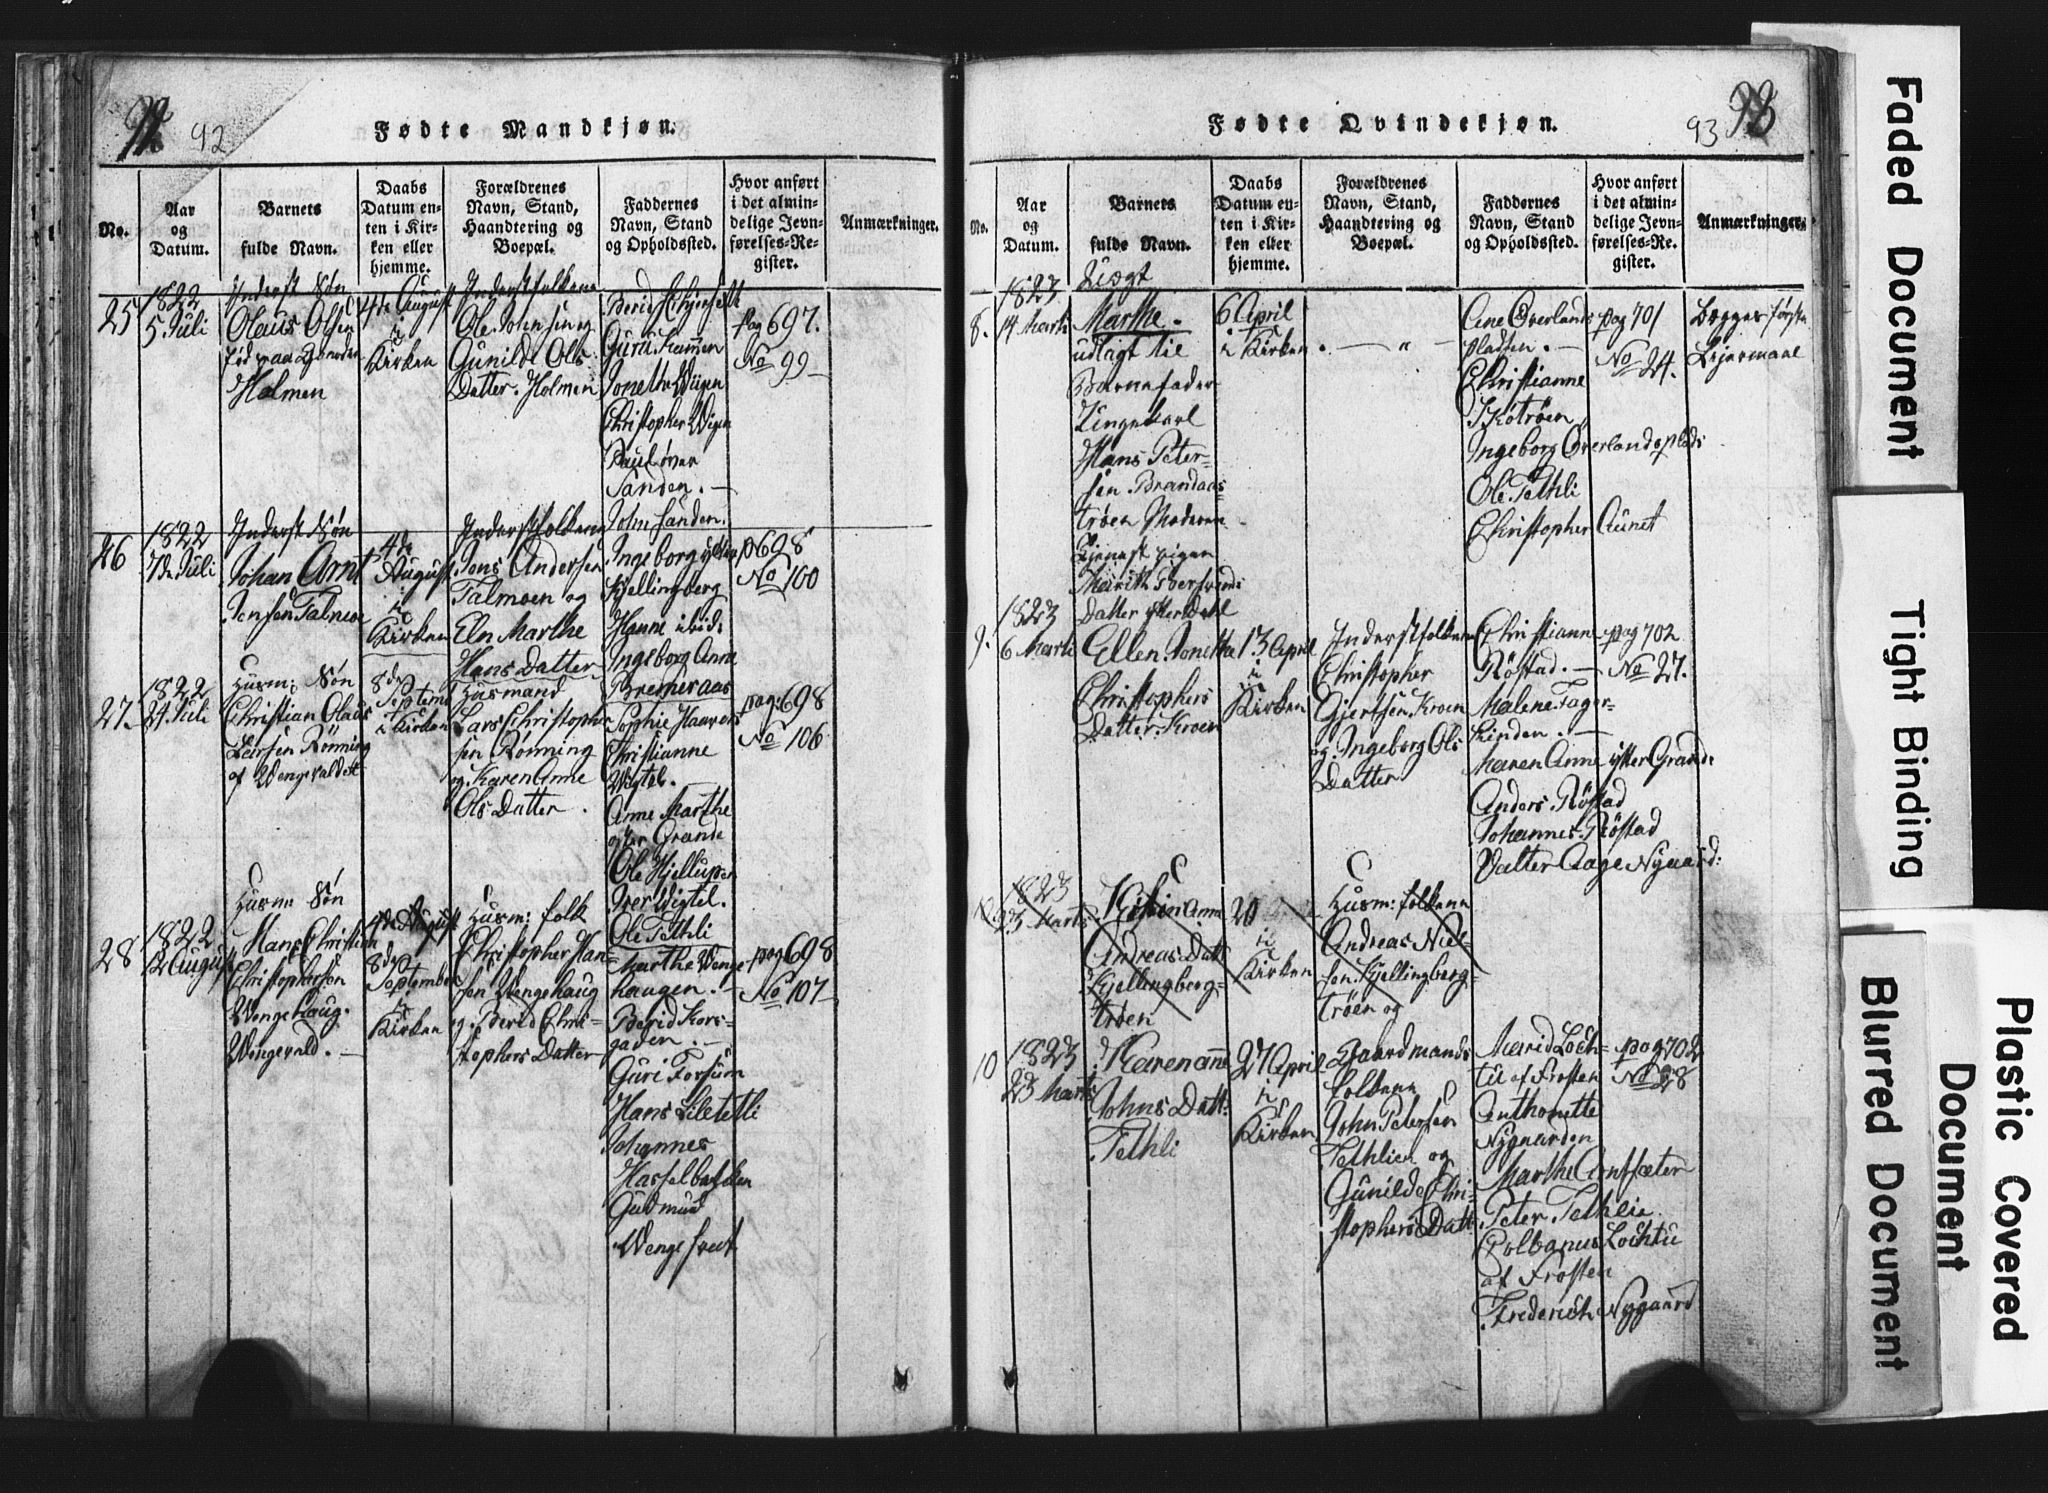 92
Fødte Mandkjøn.
No.
Aar
og
Datum.
Barnets
fulde Navn.
Daabs
Datum en-
ten i Kir-
ken eller
hjemme.
Forældrenes
Navn, Stand,
Haandtering og
Boepæl.
Faddernes
Navn, Stand
og Opholdssted.
Hvor anført
i det almin-
delige Jevn-
førelses-Re-
gister.
Anmærkninger.
25
1822
5 Juli
Inderst Søn
Olaus Olsen
Holmen
4de August
i
Kirken
Inderstfolkene
Ole Johnsen og
Gunild Ols
Datter. Holmen
Christopher Wigen
Sanden. —
John Sanden.
pag 697.
No 99 —
26
1822
7de Juli
Inderst Søn
Johan Arnt
Jensen Talmoe
4de
August
i
Kirken
Inderstfolkene
Jens Andersen
Talmoen og
Eln Marthe
Hans Datter
Kjellingberg
Hanne ibid:
Ingeborg Anna
Bremeraas
p 698
No 100
27.
1822
24 Juli
Husm: Søn
Christian Olaus
Larsen Rönning
8de
Septemb
i Kirken
Husmand
Lars Christopher
sen Rönning
og Karen Anne
Ols Datter.
Christianne
Wigtel. —
Anne Marthe
Grande
Iver Wigtel.
Ole Tethli
pag: 698
No 106
28
1822
12 August
Husm: Søn
Hans Christian
Christophersen
Wengehaug.
Wengevald. —
4de August
8de
September
i
Kirken
Husm: folk
Christopher Han-
sen Wengehaug
og Berid Chri-
stophers Datter
Marthe Wenge-
haugen. —
Berid Kors-
gaden. —
Guri Forsum
Hans Liletetli
Johannes
Hasselbakken
Gudmund
pag 698
No 107 —
93
Fødte Qvindekjøn.
No.
Aar
og
Datum.
Barnets
fulde Navn.
Daabs
Datum en-
ten i Kir-
ken eller
hjemme.
Forældrenes
Navn, Stand,
Haandtering og
Boepæl.
Faddernes
Navn, Stand
og Opholdssted.
Hvor anført
i det almin-
delige Jevn-
førelses-Re-
gister.
Anmærkninger.
8.
1823
14 Marti
Uægt
Marthe.
udlagt til
Barnefader
Ungekarl
Hans Peter-
sen Brandaas-
trøen Moderen
Datter ytterdahl
6 April
i Kirken
Ane Överlands
pladsen. —
Christianne
Ingeborg Överlandsplads
Ole Tethli
Christopher Aunet
pag 701
No 24.
Begges første
Leiermaal
9.
1823
6 Marti
Ellen Jonetta
Christophers
Datter. Kroen
13 April
i
Kirken
Inderstfolkene
Christopher
Gjertsen. Kroen
og Ingeborg Ols
Datter
Christianne
Röstad. —
Malene Fager-
Maren Anne ytter Grande
Anders Röstad
Johannes Röstad
Valter Aage Nygaard:
pag 702
No 27.
10
1823
23 Marts
Andreas Datt
Kjellingberg-
trøen
20
i
Kirken
Husm: folkene
Andreas Niel-
sen Kjellingberg-
trøen og
10
1823
23 Marts
Karen Anne
Johns Datt:
Tethli
27 April
i
Kirken
Gaardmands
folkene
John Petersen
Tethlien og
Gunilde Chri-
stophers Datt
Marid Loch-
tu af Frosten
Anthonette
Nygaarden
Marthe Arntsæter
Peter Tethlie
Lochtu
af Frosten
Frederich Nygaard
pag 702
No 28
Faded Document
Tight Binding
Blurred Document
Plastic Covered
Document